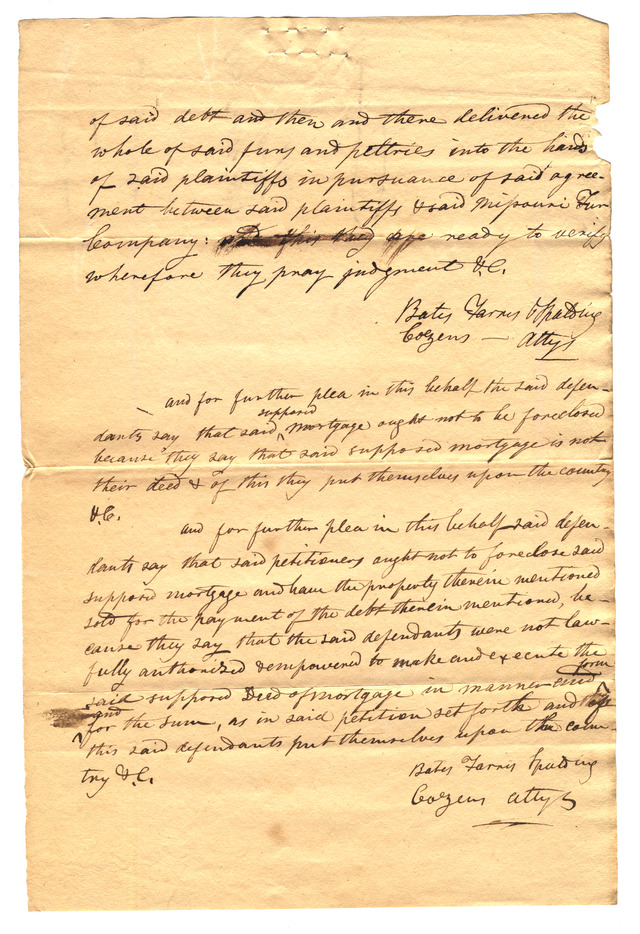 of said debt and then and there delivered the
whole of said furs and peltries into the hands
of said plaintiffs in pursuance of said agree-
ment between said plaintiffs & said Missouri Fur
Company: and this they are ready to verify
wherefore they pray judgment &C.
Bates Farris Spalding
Cozens — Attys
and for further plea in this behalf the said defen-
dants say that said supposed mortgage ought not to be foreclosed
because they say that said supposed mortgage is not
their deed & of this they put themselves upon the country
&C.
and for further plea in this behalf said defen-
dants say that said petitioners ought not to foreclose said
supposed mortgage and have the property therein mentioned
sold for the payment of the debt therein mentioned, be-
cause they say that the said defendants were not law-
fully authorized & empowered to make and execute the
said supposed Deed of mortgage in manner and form
and for the sum, as in said petition set forth and of
this said defendants put themselves upon the coun-
try &C.
Bates Farris Spalding
Cozens Attys